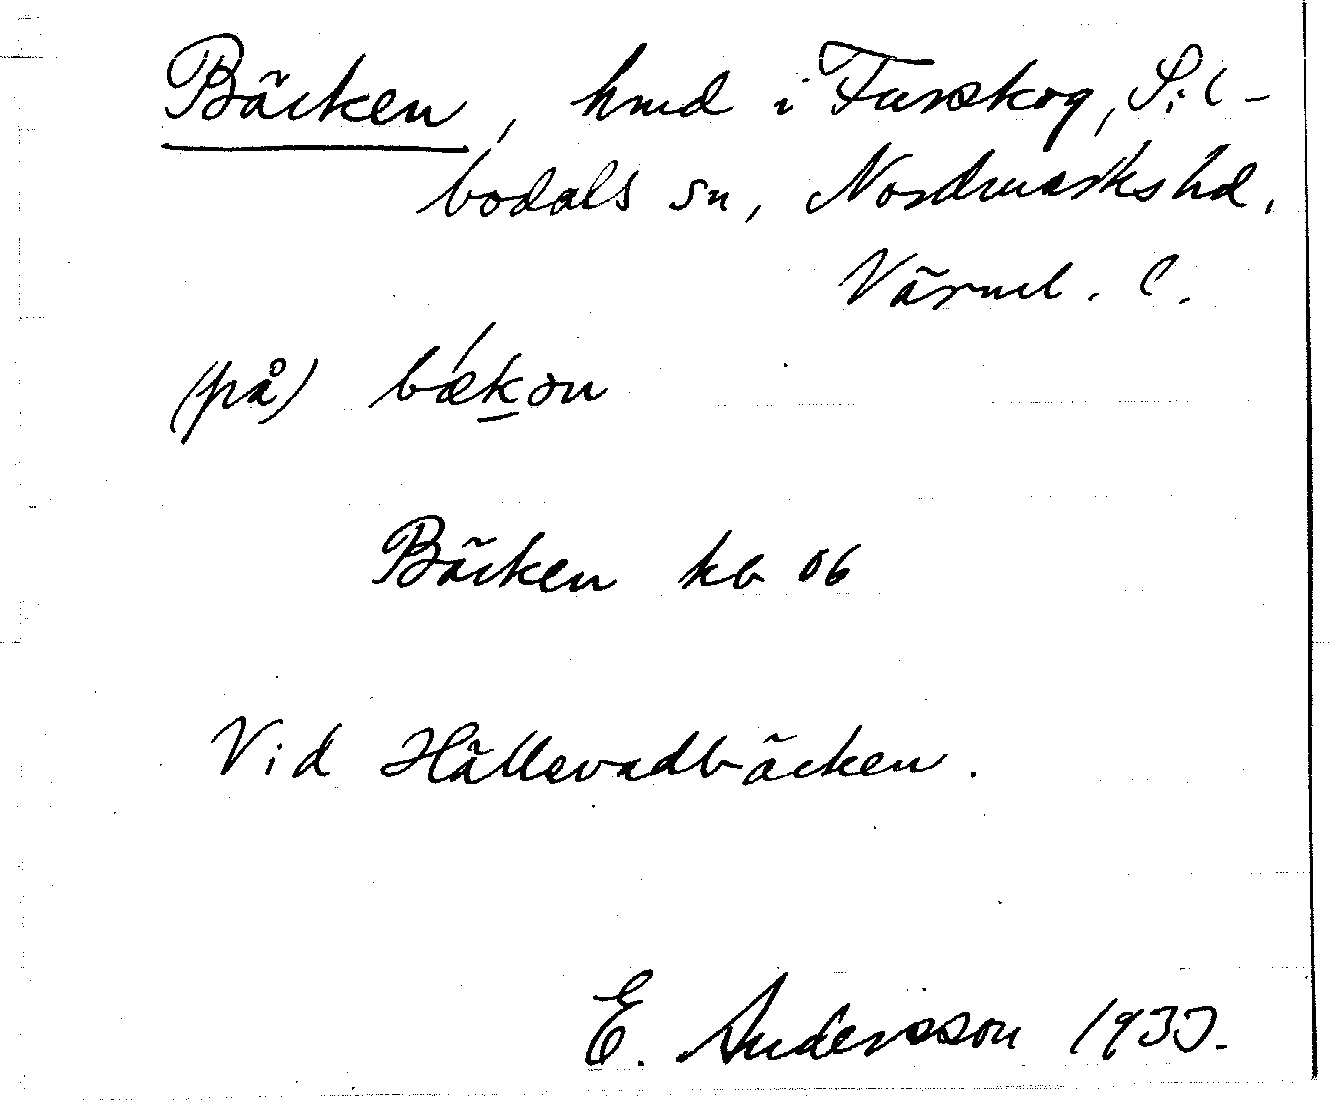 Bäcken, hmd i Furskog, Sil-
bodals sn, Nordmarks hd,
Värml. l.
(på) bækən
Bäcken kb 06
Vid Hällevadbäcken.
E. Andersson 1933.